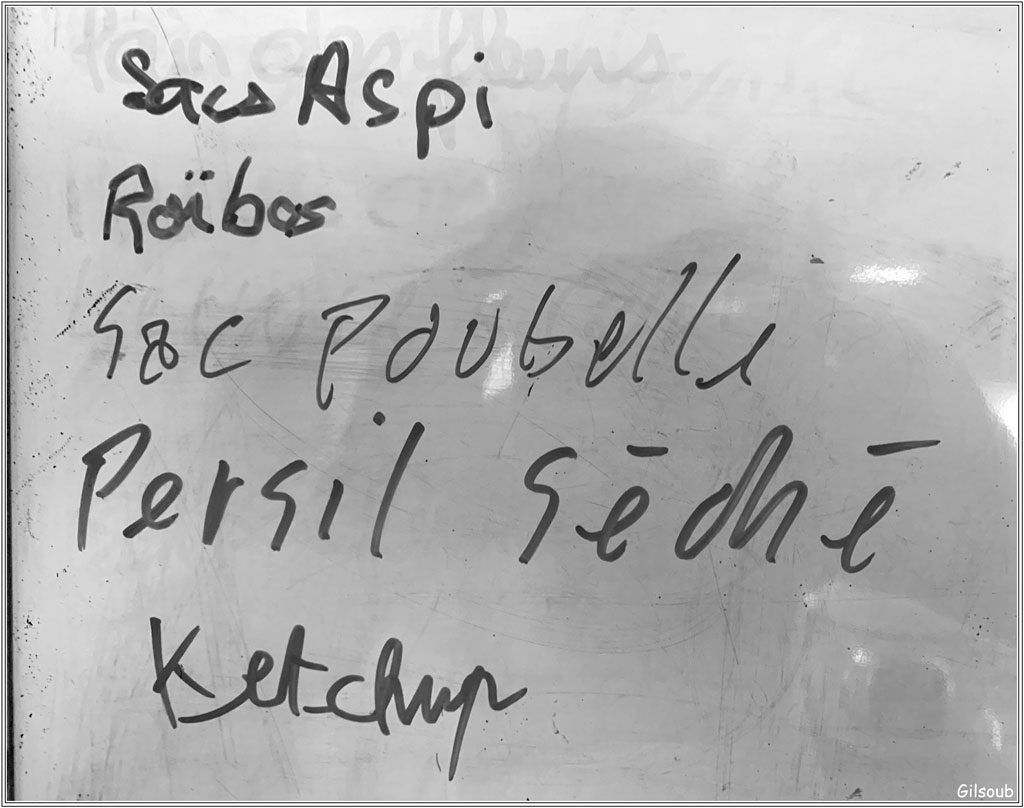 Sacs Aspi
Roïbos
Sac poubelle
Persil séché
Ketchup
Gilsoub